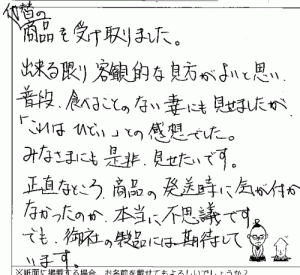 代替の
商品を受け取りました。
出来る限り客観的な見方がよいと思い、
普段、食べることのない妻にも見せましたが、
「これはひどい」との感想でした。
みなさまにも是非、見せたいです。
正直なところ、商品の発送時に気が付か
なかったのか、本当に不思議です。
でも、御社の製品には期待して
います。
※紙面に掲載する場合、お名前を載せてもよろしいでしょうか？